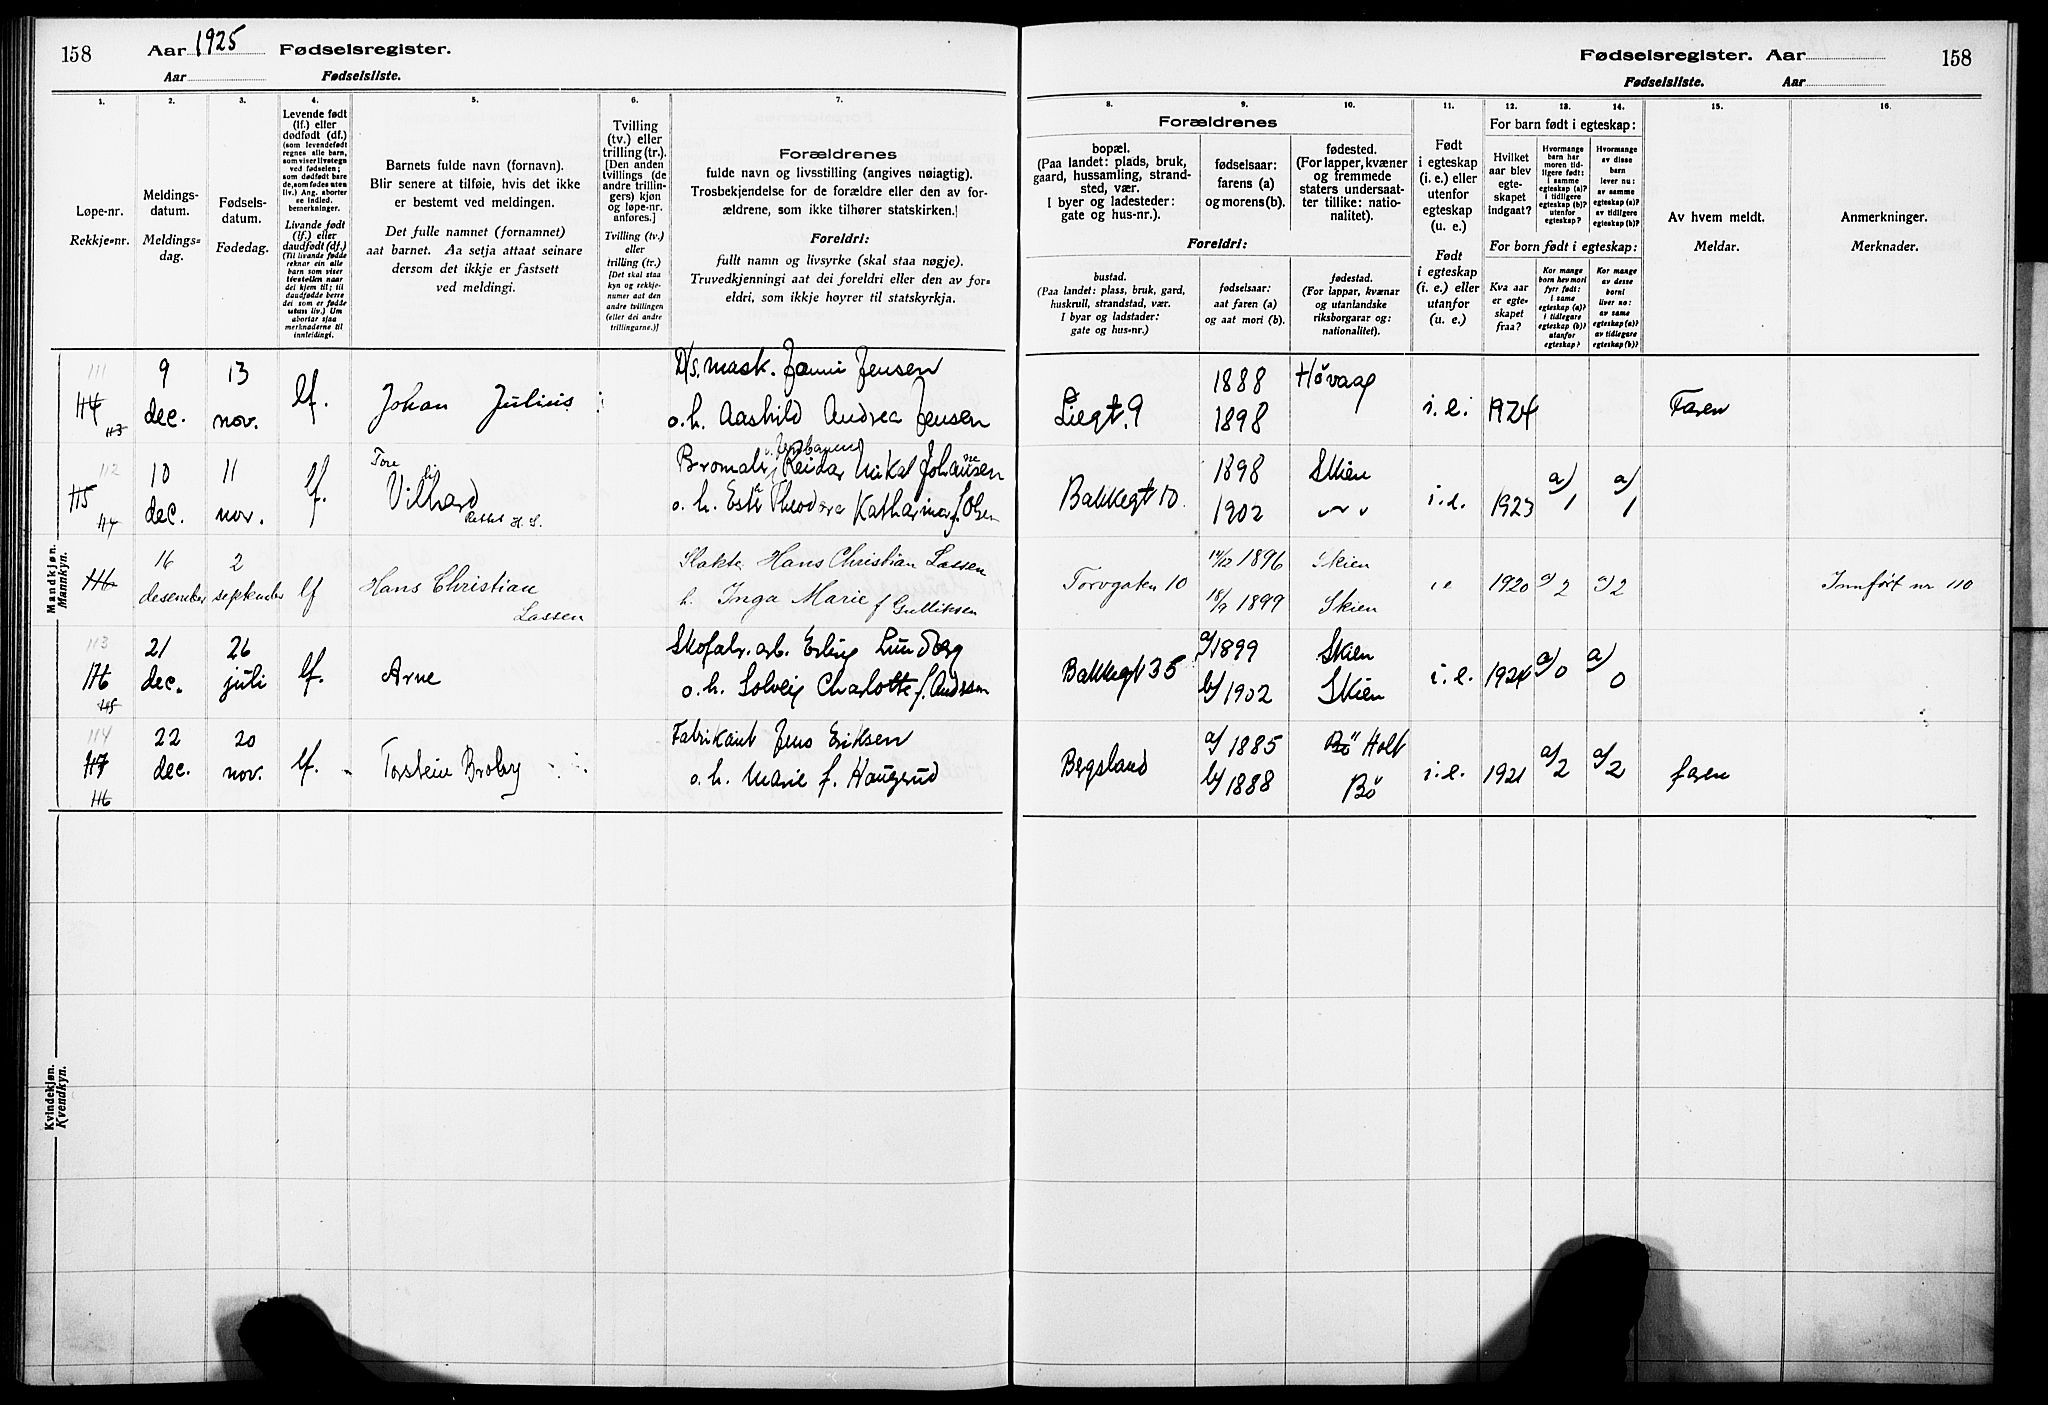 158
Aar 1925 Fødselsregister.
Aar Fødselsliste.
1.
Løpe-nr.
Rekkje-nr.
2.
Meldings-
datum.
Meldings-
dag.
3.
Fødsels-
datum.
Fødedag.
4.
Levende født
(lf.) eller
dødfødt (df.)
(som levendefødt
regnes alle barn,
som viser livstegn
ved fødselen;
som dødfødt bare
de, som fødes uten
liv.) Ang. aborter
se indled.
bemerkninger.
Livande født
(lf.) eller
daudfødt (df.)
(Til livande fødde
reknar ein alle
barn som viser
livsteikn naar
dei kjem til; til
daudfødde berre
dei som er fødde
utan liv.) Um
abortar sjaa
merknaderne til
innleidingi.
5.
Barnets fulde navn (fornavn).
Blir senere at tilføie, hvis det ikke
er bestemt ved meldingen.
Det fulle namnet (fornamnet)
aat barnet. Aa setja attaat seinare
dersom det ikkje er fastsett
ved meldingi.
6.
Tvilling
(tv.) eller
trilling (tr.).
[Den anden
tvillings (de
andre trillin-
gers) kjøn
og løpe-nr.
anføres.]
Tvilling (tv.)
eller
trilling (tr.)
[Det skal staa
kyn og rekkje-
numer aat den
andre tvillingen
(eller dei andre
trillingarne.)]
7.
Forældrenes
fulde navn og livsstilling (angives nøiagtig).
Trosbekjendelse for de forældre eller den av for-
ældrene, som ikke tilhører statskirken.
Foreldri:
fullt namn og livsyrke (skal staa nøgje).
Truvedkjenningi aat dei foreldri eller den av for-
eldri, som ikkje høyrer til statskyrkja.
Mandkjøn.
Mannkyn.
111
114
113
9
dec.
13
nov.
lf.
Johan Julius
D/s. mask. Jenssen
o. h. Aashild Andrea Jensen
112
115
114
10
dec.
11
nov.
lf.
Tore
Vilhard
Rettet H. S.
Reidar Mikal Johansen
o. h. Theodora Katharina f. Olsen
116
16
desember
2
september
lf
Hans Christian
Lassen
Slakter Hans Christian Lassen
h. Inga Marie f Gulliksen
113
116
115
21
dec.
26
juli
lf.
Arne
Skofabr. arb. Erling Lundberg
o. h. Solveig Charlotte f. Andssen
114
117
116
22
dec.
20
nov.
lf.
Torstein Broby
Fabrikant Jens Eriksen
o. h. Marie f. Haugerud
Kvindekjøn.
Kvendkyn.
Fødselsregister. Aar
158
Fødselsliste. Aar
8.
Forældrenes
bopæl.
(Paa landet: plads, bruk,
gaard, hussamling, strand-
sted, vær.
I byer og ladesteder:
gate og hus-nr.).
Foreldri:
bustad.
(Paa landet: plass, bruk, gard,
huskrull, strandstad, vær.
I byar og ladstader:
gate og hus-nr.)
9.
fødselsaar:
farens (a)
og morens (b).
fødselsaar:
aat faren (a)
og aat mori (b).
10.
fødested.
(For lapper, kvæner
og fremmede
staters undersaat-
ter tillike: natio-
nalitet).
fødestad.
(For lappar, kvænar
og utanlandske
riksborgarar og:
nationalitet).
11.
Født
i egteskap
(i. e.) eller
utenfor
egteskap
(u. e.)
Født
i egteskap
(i. e.) eller
utanfor
(u. e.)
12.
13.
14.
For barn født i egteskap:
Hvilket
aar blev
egte-
skapet
indgaat?
Hvormange
barn har
moren tid-
ligere født:
i samme
egteskap (a)?
i tidligere
egteskap (b)?
utenfor
egteskap?
Hvormange
av disse
barn
lever nu:
av samme
egteskap (a)?
av tidligere
egteskap (b)?
For born født i egteskap:
Kva aar
er egte-
skapet
fraa?
Kor mange
born hev mori
fyrr født:
i same
egteskap (a)?
i tidlegare
egteskap (b)?
utanfor
egteskap?
Kor mange
av desse
borni
liver no:
av same
egteskap (a)?
av tidlegare
egteskap (b)?
15.
Av hvem meldt.
Meldar.
16.
Anmerkninger.
Merknader.
Liegt. 9
1888
1898
Høvaag
i. e.
1924
Faren
Bakkegt 10
1898
1902
Skien
i. e.
1923
a/1
a/1
Torvgaten 10
14/12 1896
18/9 1899
Skien
Skien
i e
1920
a/2
a/2
Innført nr 110
Bakkegt 35
a/1899
b/1902
Skien
Skien
i. e.
1924
a/0
a/0
Bergsland
a/1885
b/1888
Bø Holt
Bø
i. e.
1921
a/2
a/2
faren